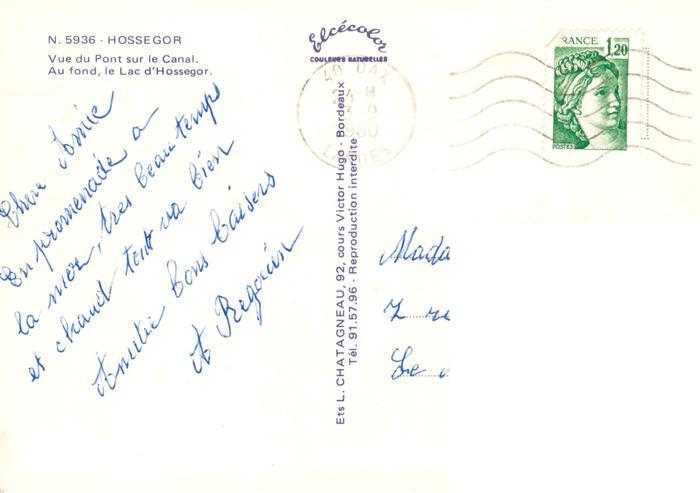 N. 5936 - HOSSEGOR
Vue du Pont sur le Canal.
Au fond, le Lac d'Hossegor.
Chère Amie
En promenade a
la mer, très beau temps
et chaud tout va bien
Amitié Bons baisers
A Pregorin
Elcécolor
COULEURS NATURELLES
40 DAX
24 H
3-9
1980
LANDES
FRANCE
1,20
POSTES
Ets L. CHATAGNEAU, 92, cours Victor Hugo - Bordeaux
Tél. 91.57.96 - Reproduction interdite
Mada
Le